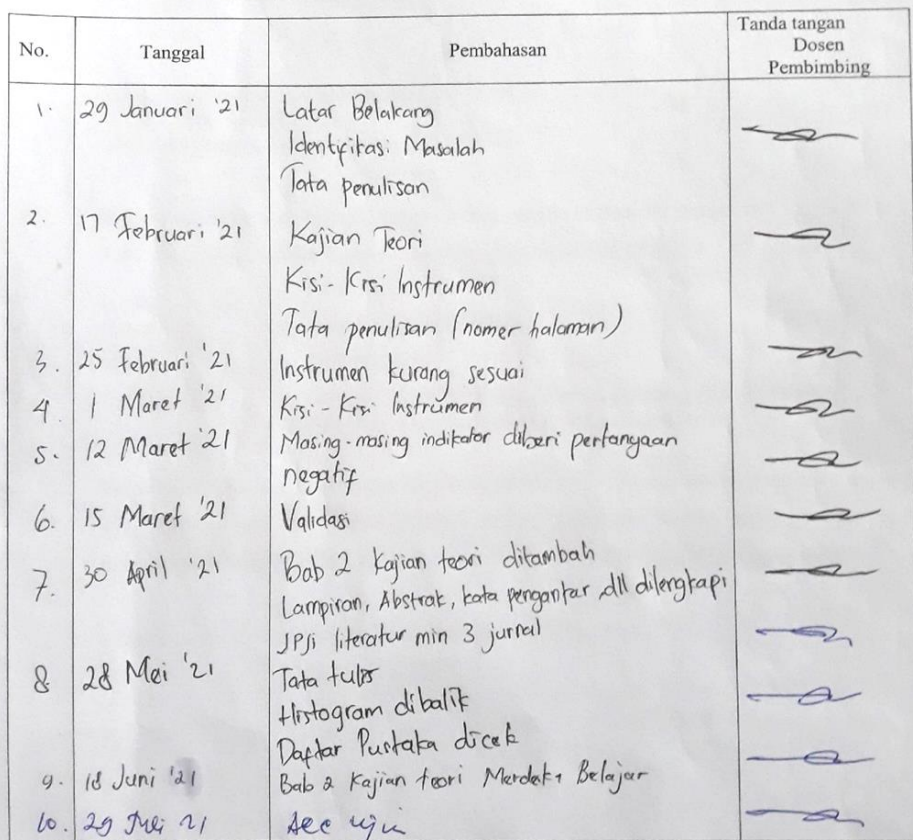 No. Tanggal Pembahasan Tanda tangan
Dosen
Pembimbing
1. 29 Januari '21 Latar Belakang
Identifikasi Masalah
Tata penulisan
2. 17 Februari '21 Kajian Teori
Kisi-Kisi Instrumen
Tata penulisan (nomer halaman)
3. 25 Februari '21 Instrumen kurang sesuai
4. 1 Maret '21 Kisi-Kisi Instrumen
5. 12 Maret '21 Masing-masing indikator diberi pertanyaan
negatif
6. 15 Maret '21 Validasi
7. 30 April '21 Bab 2 Kajian teori ditambah
Lampiran, Abstrak, kata pengantar dll dilengkapi
JPSI literatur min 3 jurnal
8 28 Mei '21 Tata tulis
Histogram dibalik
Daftar Pustaka dicek
9. 18 Juni '21 Bab 2 Kajian teori Merdeka Belajar
10. 29 21 Acc ujin